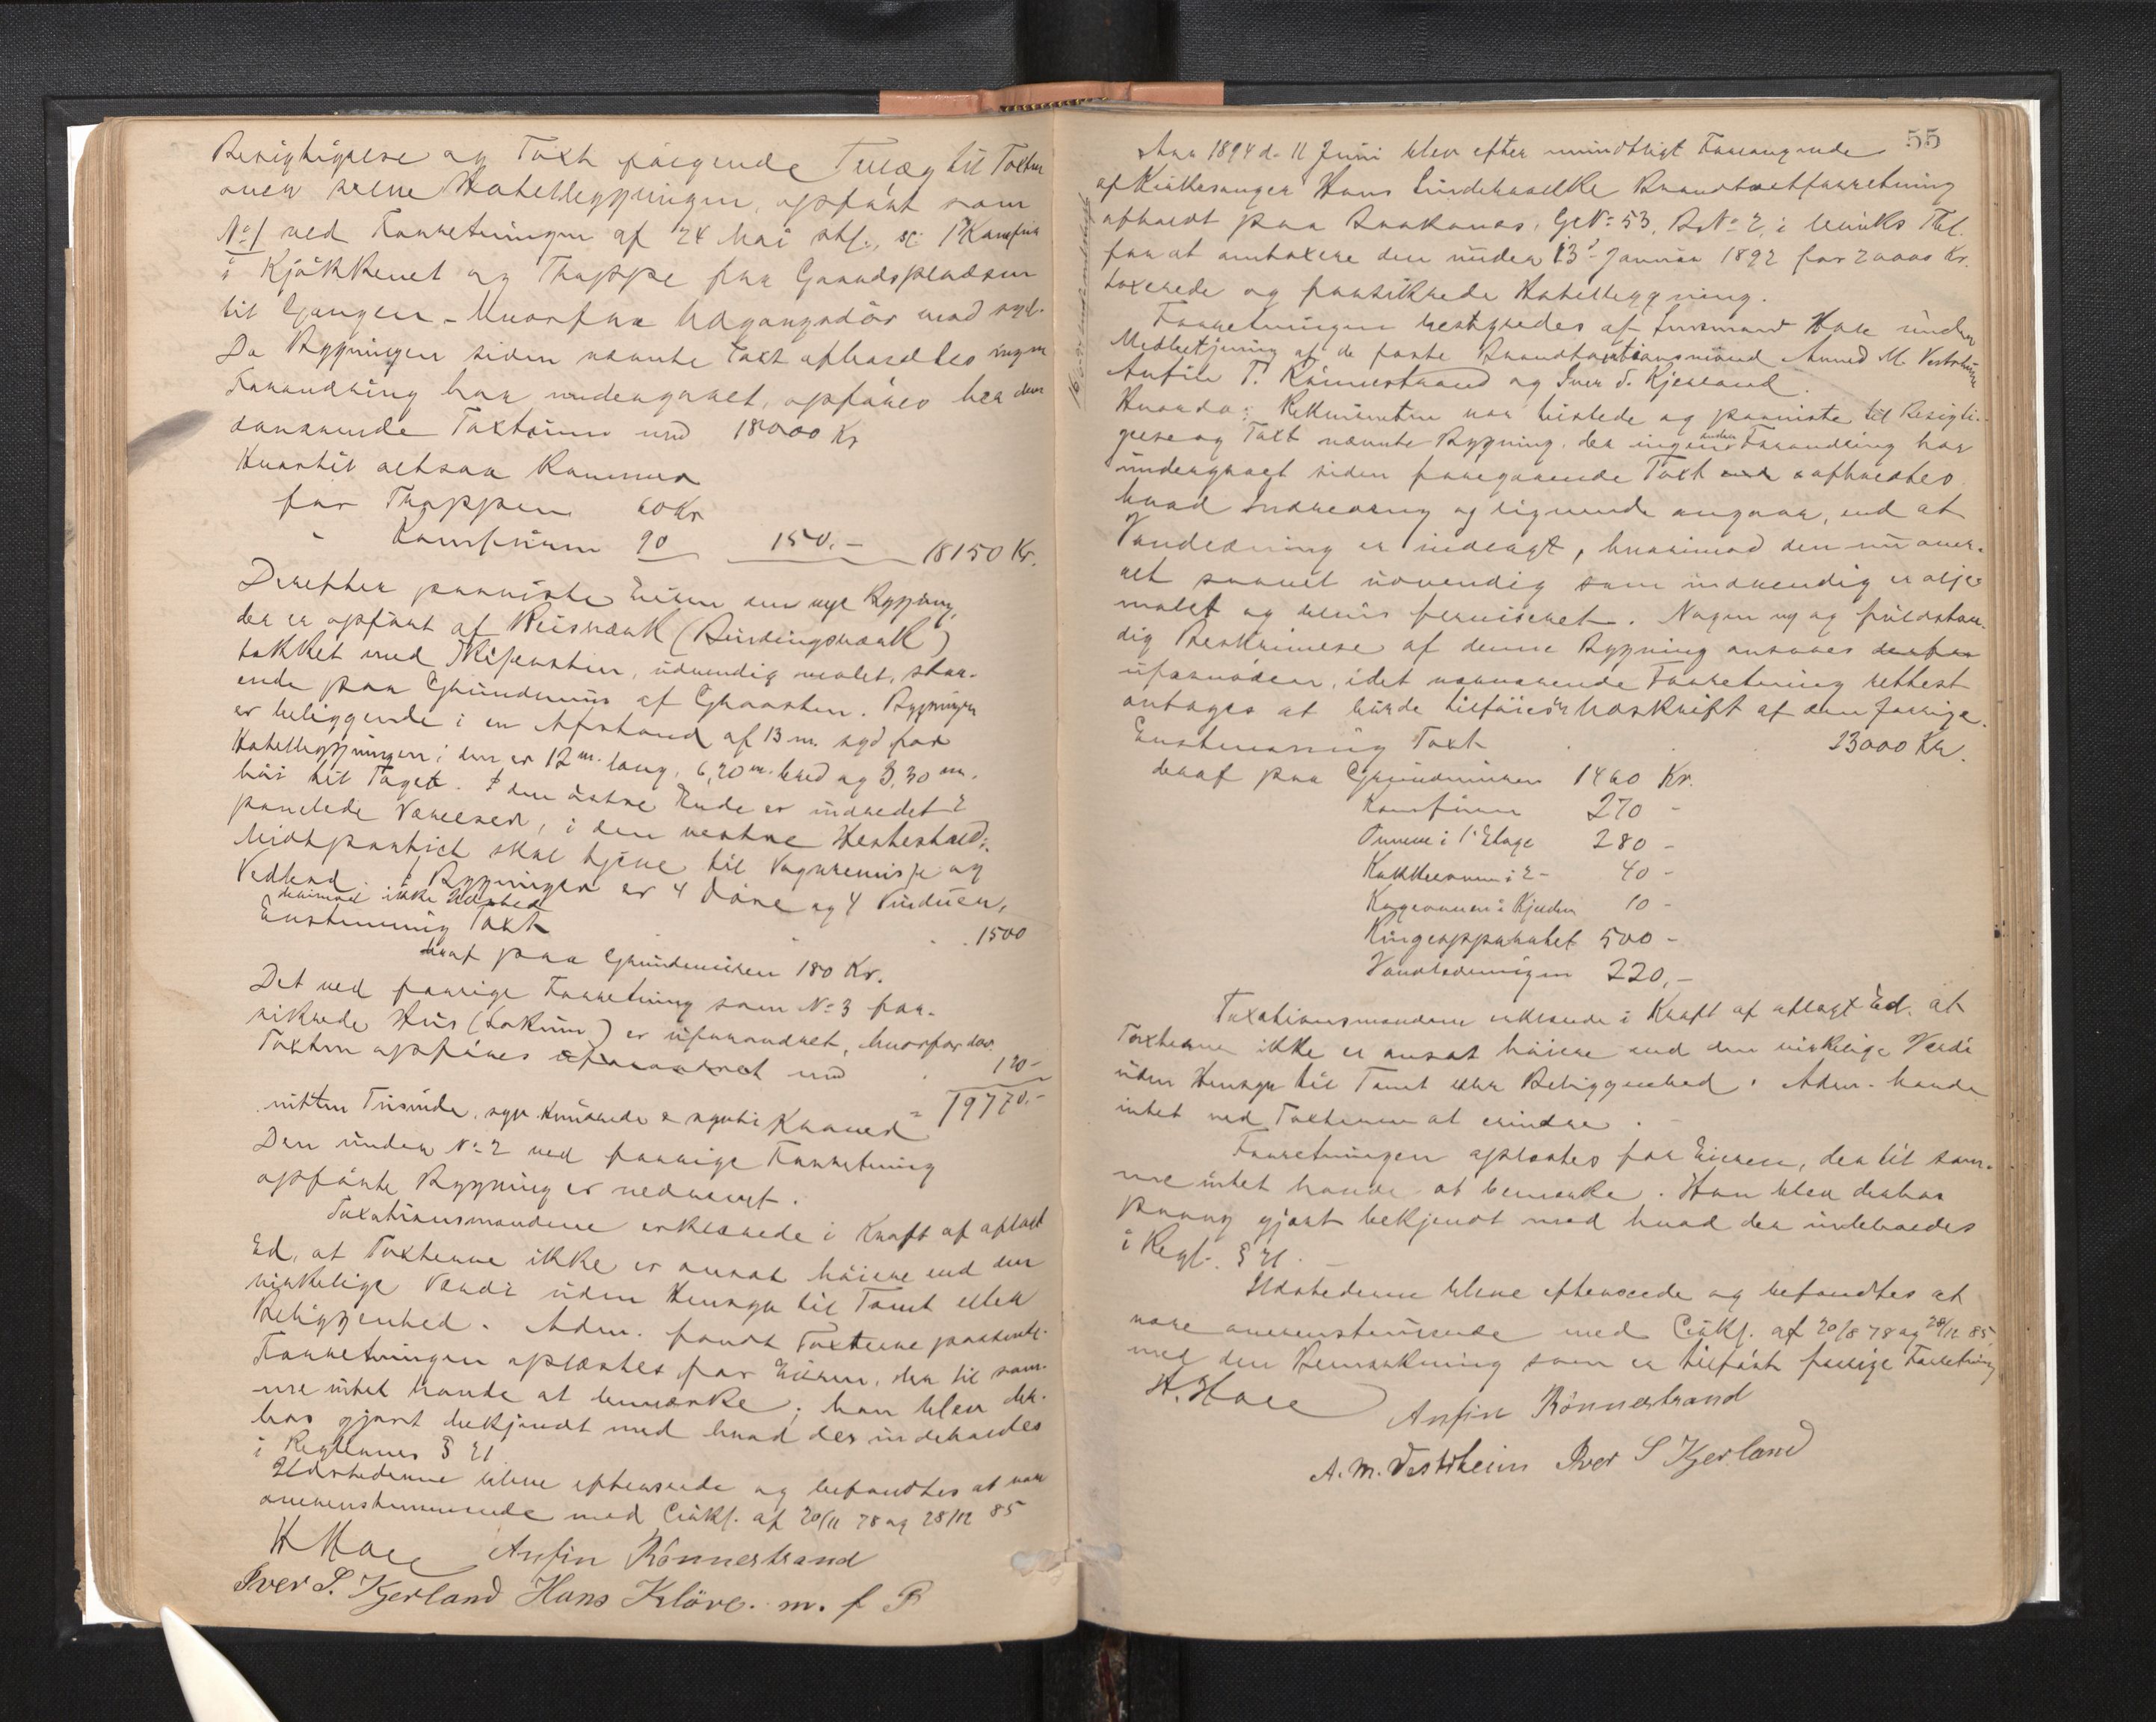 Besigtigelse og Taxt følgende Tillæg til Taxten
over selve Hotelbygningen, opført som
No 1 ved Forretningen af 24 Mai shl., sc: 1 Komfur
i Kjøkkenet og Trappe fra Gaardspladsen
til Gangen – Hvorfra Udgangsdør mod syd.
Da Bygningen siden nævnte Taxt afholdtes ingen
Forandring har undergaaet, opføres her den
daværende Taxtsum med 18000 Kr
Hvortil altsaa kommer
for Trappen 60 Kr
" Komfuren 90 150.– 18150 Kr.
Derefter paaviste Eieren en nye Bygning,
der er opført af Reisværk (Bindingsværk)
tækket med Skifersten, udvendig malet, staa-
ende paa Grundmur af Graasten. Bygningen
er beliggende i en Afstand af 13 m. syd for
Hotelbygningen; den er 12 m. lang, 6,20 m. bred og 3,30 m.
høi til Taget. I den østre Ende er indredet 2
panelede Værelser, i den vestre Hestestald;
Midtpartiet skal tjene til Vognremisse og
Vedbod. I Bygningen er 4 Døre og 4 Vinduer,
derimod ikke Ildsted
Enstemmig Taxt . . . 1500
deraf paa Grundmuren 180 Kr.
Det ved forrige Forretning som No 3 for-
sikrede Hus (Lokum) er uforandret, hvorfor
Taxten opføres uforandret med . 120–
= 19770.–
nitten Tusinde, syv Hundrede & sytti Kroner
Den under No 2 ved forrige Forretning
opførte Bygning er nedrevet.
Taxationsmændene erklærede i Kraft af aflagt
Ed, at Taxterne ikke er ansat høiere end den
virkelige Værdi uden Hensyn til Tomt eller
Beliggenhed. Adm. fandt Taxterne passende.
Forretningen oplæstes for Eieren, der til sam-
me intet havde at bemærke; han blev der-
hos gjort bekjendt med hvad der indeholdes
i Reglernes § 21
Ildstederne bleve efterseede og befandtes at være
overensstemmende med Cirkl. af 20/11 78 og 28/12 85
H Hoel Anfin Rönnestrand
Iver S. Kjerland Hans Klöve. m. f P
55
Aar 1894 d. 11 Juni blev efter mundtligt Forlangende
af Kirkesanger Hans Lindebrække Brandtaxtforretning
afholdt paa Brakenes, G.No 53, B.No 2, i Ulviks Thl.
for at omtaxere den under 13 Januar 1892 for 20000 Kr.
taxerede og forsikrede Hotelbygning.
Forretningen bestyredes af Lensmand Hoel under
Medbetjening af de faste Brandtaxtationsmænd Amund M. Vestrheim
Anfin T. Rönnestrand og Iver S. Kjerland.
Hvorda: Rekvirenten var tilstede og paaviste til Besigti-
gelse og Taxt nævnte Bygning, der ingen anden Forandring har
undergaaet siden foregaaende Taxt afholdtes
hvad Indredning og lignende angaar, end at
Vandledning er indlagt, hvorimod den nu over-
alt saavel udvendig som indvendig er olje-
malet og delvis ferniseret. Nogen ny og fuldstæn-
dig Beskrivelse af denne Bygning ansaaes derfor
ufornøden, idet nærværende Forretning rettest
antages at burde tilføies en Udskrift af den forrige.
Enstemmig Taxt . . 23000 Kr.
deraf paa Grundmuren 1460 Kr.
Komfuren 270 –
Ovnene i 1. Etage 280 –
Kakkelovnen i 2– 40 –
Kogeovnen i Kjelderen 10 –
Ringeapparatet 500 –
Vandledningen 220,–
Taxationsmændene erklærede i Kraft af aflagt Ed, at
Taxterne ikke er ansat høiere end den virkelige Verdi
uden Hensyn til Tomt eller Beliggenhed. Adm. havde
intet ved Taxterne at erindre.
Forretningen oplæstes for Eieren, der til sam-
me intet havde at bemærke. Han blev derhos
paany gjort bekjendt med hvad der indeholdes
i Regl. § 21.
Ildstederne bleve efterseede og befandtes at
være overensstemmende med Cirkl. af 20/8 78 og 28/12 85,
med den Bemærkning som er tilført forrige Forretning
H. Hoel Anfin Rönnestrand
A. M. Vestrheim Iver S Kjerland